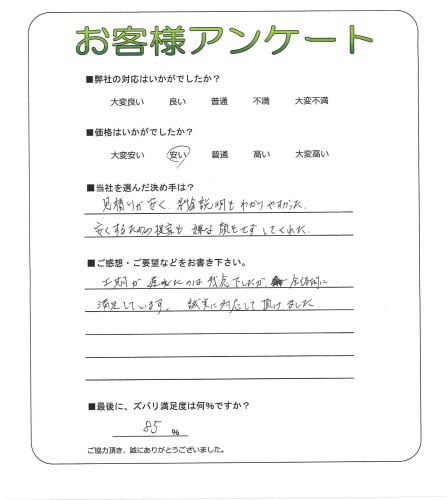 お客様アンケート
■弊社の対応はいかがでしたか？
大変良い 良い 普通 不満 大変不満
■価格はいかがでしたか？
大変安い 安い 普通 高い 大変高い
■当社を選んだ決め手は？
見積りが安く、説明もわかりやすかった。
安くするための提案も嫌な顔をせずしてくれた。
■ご感想・ご要望などをお書き下さい。
工期が遅れたのは残念でしたが、全体的に
満足しています。誠実に対応して頂けました。
■最後に、ズバリ満足度は何％ですか？
85 ％
ご協力頂き、誠にありがとうございました。